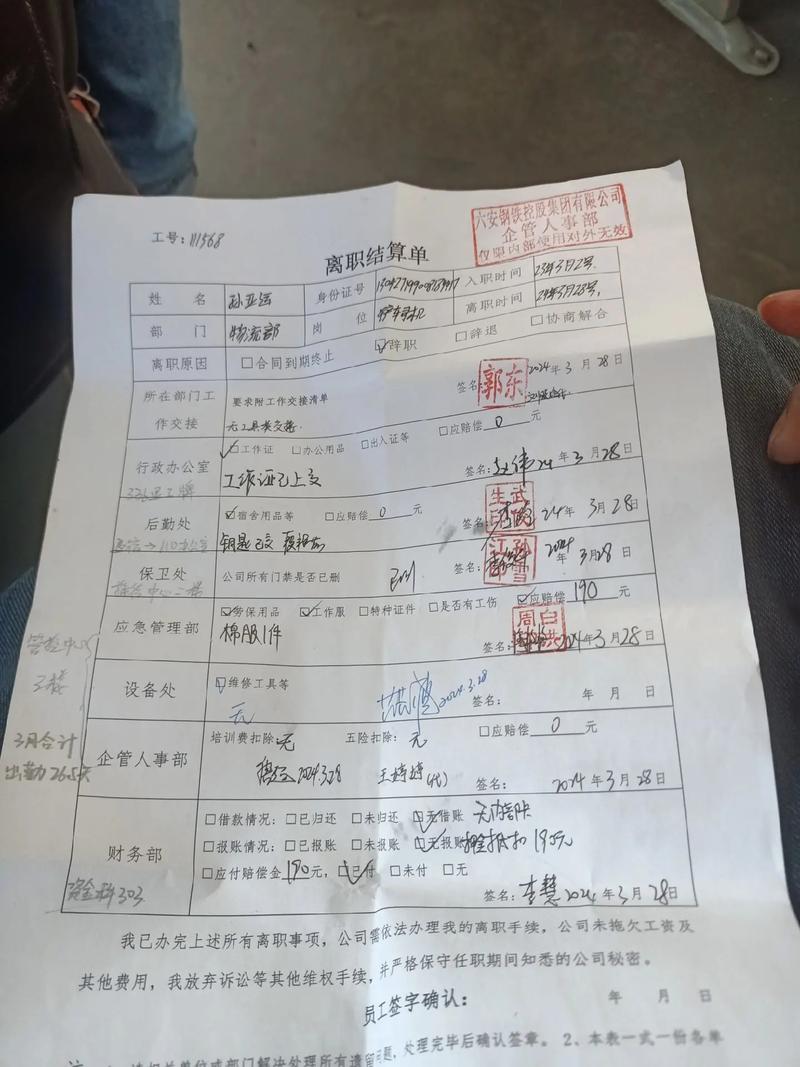 六安钢铁控股集团有限公司
企管人事部
仅限内部使用对外无效
工号: 111568
离职结算单
姓 名 孙亚运 身份证号 入职时间 23年3月2号
部 门 物流部 岗 位 离职时间 24年3月28号
离职原因 □合同到期终止 ☑辞职 □辞退 □协商解合
所在部门工作交接 要求附工作交接清单 签名: 郭东 2024年3月28日
无工具类交接.
行政办公室 ☑工作证 □办公用品 □出入证等 □应赔偿 0 元
工作证已上交 签名: 24年3月28日
后勤处 ☑宿舍用品等 □应赔偿 0 元
钥匙已交 签名: 24年3月28日
保卫处 公司所有门禁是否已删 已删 签名: 2024年3月28日
应急管理部 ☑劳保用品 ☑工作服 □特种证件 □是否有工伤 ☑应赔偿 190 元
棉服1件 签名: 2024年3月28日
设备处 ☑维修工具等
无 2024.3.28 签名: 年 月 日
管控中心
3楼
企管人事部 培训费扣除: 无 五险扣除: 无 □应赔偿 0 元
2024.3.28 王婷婷(代) 签名: 2024年3月28日
3月合计
出勤26.5天
财务部 □借款情况: □已归还 □未归还 ☑无借账
□报账情况: □已报账 □未报账 ☑无报账 190元
□应付赔偿金 190 元, ☑已付 □未付 □无
资金科303 签名: 李慧 2024年3月28日
我已办完上述所有离职事项, 公司需依法办理我的离职手续, 公司未拖欠工资及
其他费用, 我放弃诉讼等其他维权手续, 并严格保守任职期间知悉的公司秘密。
员工签字确认: 年 月 日
处理完毕后确认签章。 2、本表一式一份各单